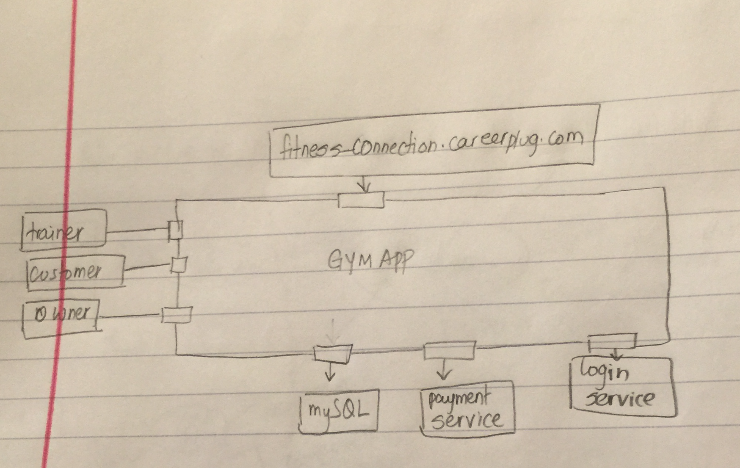 fitness-connection.careerplug.com
trainer
GYM APP
customer
owner
mySQL
payment
service
login
service